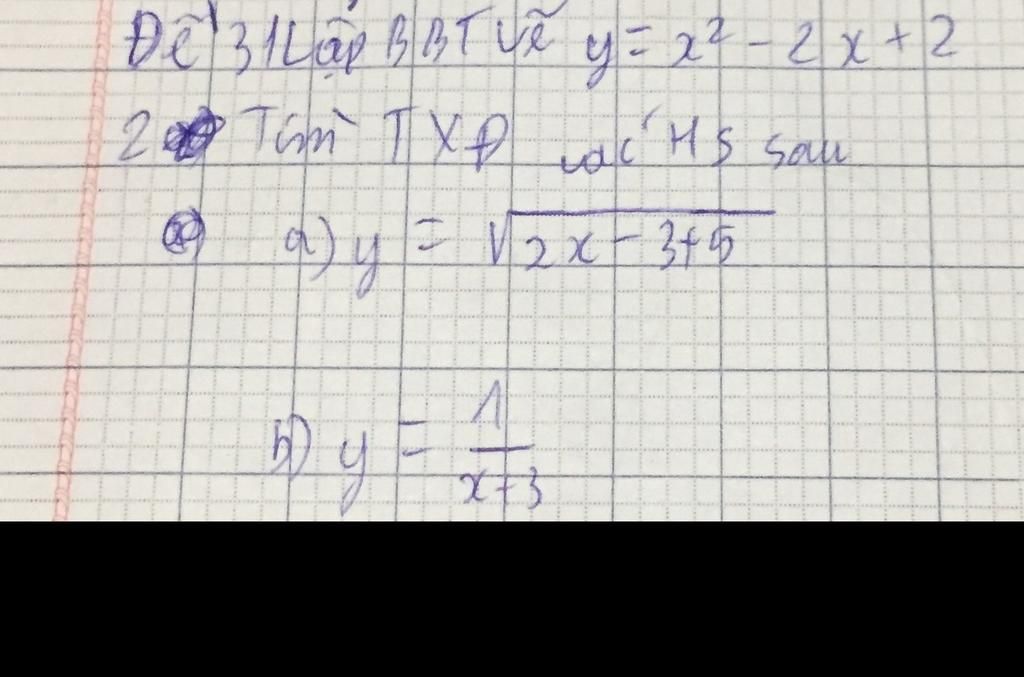 Đề 3 1 Lập BBT vẽ y = x² - 2x + 2
2 Tìm TXĐ các HS sau
a) y = √(2x - 3 + 5)
b) y = 1/(x+3)